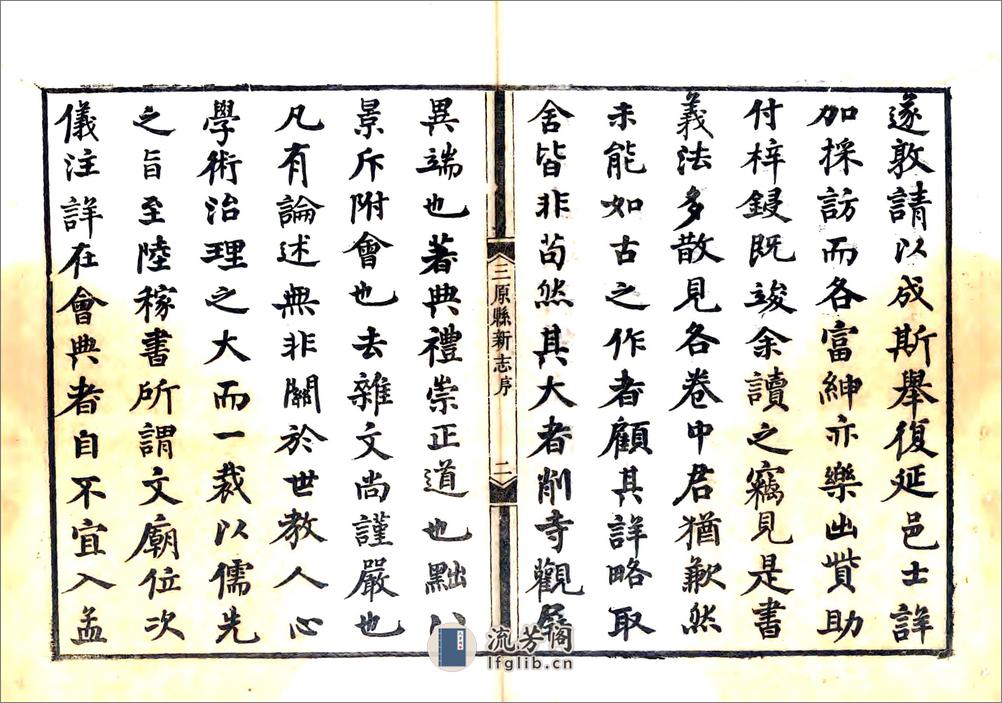 遂敦請以成斯舉復延邑士詳
加採訪而各富紳亦樂出貲助
付梓鋟既竣余讀之竊見是書
義法多散見各卷中君猶歉然
未能如古之作者顧其詳略取
舍皆非苟然其大者削寺觀
三原縣新志序
二
異端也著典禮崇正道也黜八
景斥附會也去雜文尚謹嚴也
凡有論述無非關於世教人心
學術治理之大而一裁以儒先
之旨至陸稼書所謂文廟位次
儀注詳在會典者自不宜入孟
流芳阁
lfglib.cn